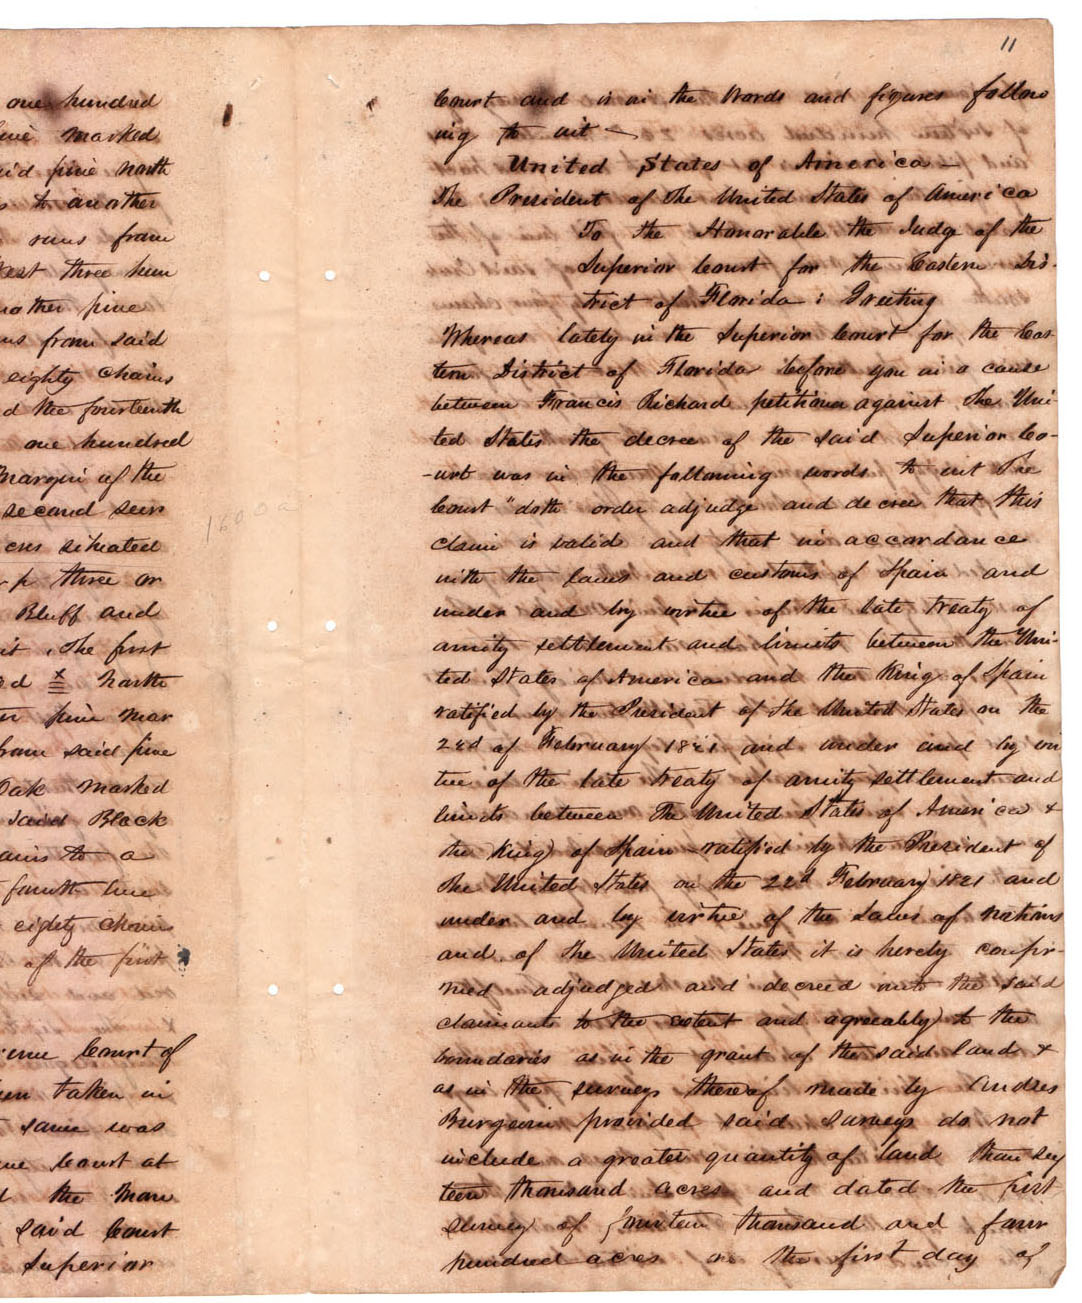 one hundred
line marked
said pine north
to another
runs from
West three hun
another pine
runs from said
eighty chains
d the fourteenth
one hundred
Margin of the
second seir
cres situated
three or
Bluff and
it, The first
ed x north
pine mar
from said pine
Oak marked
said Black
ains to a
fourth line
eighty chains
of the first
eme Court of
en taken in
same was
me Court at
d the Man
said Court
Superior
1600a
11
Court and is in the words and figures follow
ing to wit
United States of America
The President of The United States of America
To the Honorable the Judge of the
Superior Court for the Eastern Dis-
trict of Florida : Greeting
Whereas lately in the Superior Court for the Eas-
tern District of Florida before you in a cause
between Francis Richard petitioner against The Uni-
ted States the decree of the said Superior Co-
-urt was in the following words to wit The
Court "doth order adjudge and decree that this
claim is valid and that in accordance
with the laws and customs of Spain and
under and by virtue of the late treaty of
amity settlement and limits between the Uni-
ted States of America and the King of Spain
ratified by the President of the United States on the
22d of February 1821 and under and by vir
tue of the late treaty of amity settlement and
limits between The United States of America &
the King of Spain ratified by the President of
the United States on the 22d February 1821 and
under and by virtue of the Laws of nations
and of the United States it is hereby confir-
med adjudged and decreed unto the said
claimants to the extent and agreeably to the
boundaries as in the grant of the said land &
as in the surveys thereof made by Andres
Burgevin provided said surveys do not
include a greater quantity of land than six
teen thousand acres and dated the first
survey of fourteen thousand and four
hundred acres on the first day of